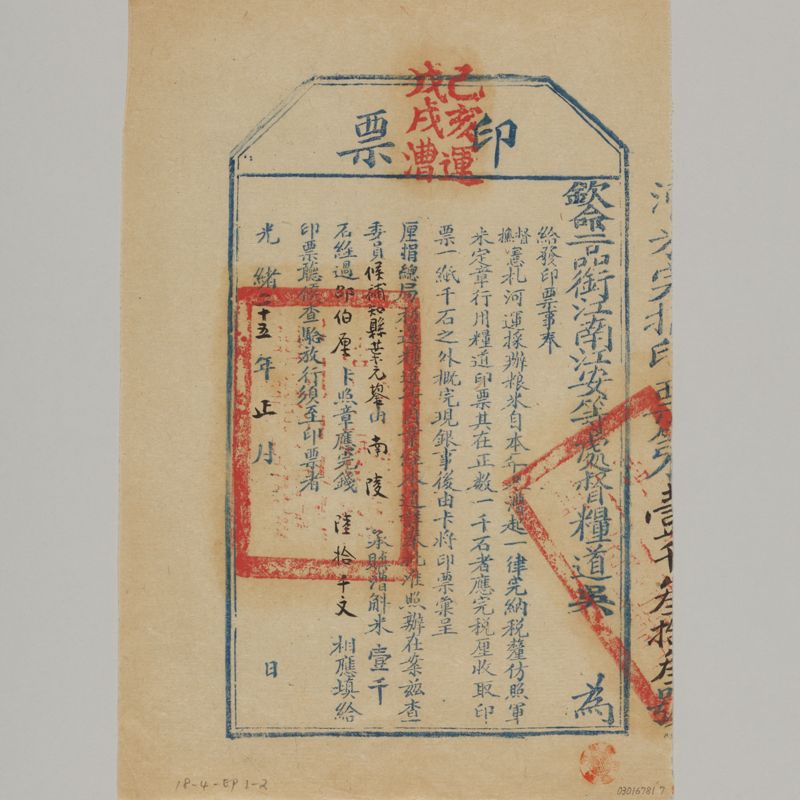 印票
己亥運
戊戌漕
欽命二品銜江南江安等處督糧道吳 為
給發印票事奉
督撫憲札河運採辦粮米自本 漕起一律完納稅釐仿照軍
米定章行用糧道印票其在正數一千石者應完稅厘收取印
票一紙千石之外概完現銀事後由卡將印票彙呈
厘捐總局 准照辦在案茲查
委員候補知縣 由 南陵 漕斛米壹千
石經過邵伯厘卡照章應完錢 陸拾千文 相應填給
印票聽候查驗放行須至印票者
光緒二十五年正月 日
印 壹千叁拾叁號
18-4-EP 1-2
03016781 7